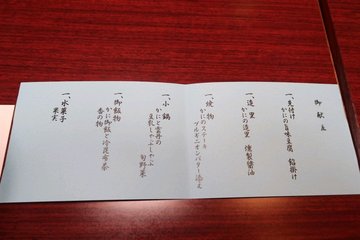 御献立
一、先付け
かにの旨味豆腐 餡掛け
一、造里
かにの造里 燻製醤油
一、焼物
かにのステーキ
ブルギニオンバター添え
一、小鍋
かにと雲丹の
豆乳しゃぶしゃぶ 旬野菜
一、御飯物
かに御飯と冷昆布茶
香の物
一、水菓子
果実